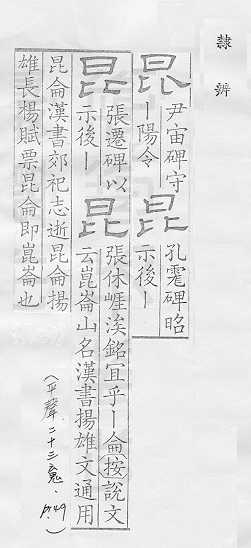 隸辨
昆
尹宙碑守
丨陽令
昆
孔碑昭
示後丨
昆
張遷碑以
示後丨
昆
張休崕涘銘冝乎丨侖按說文
云崑崙山名漢書揚雄文通用
昆侖漢書郊祀志逝昆侖揚
雄長楊賦票昆侖即崑崙也
(平聲.二十三魂.p.149)